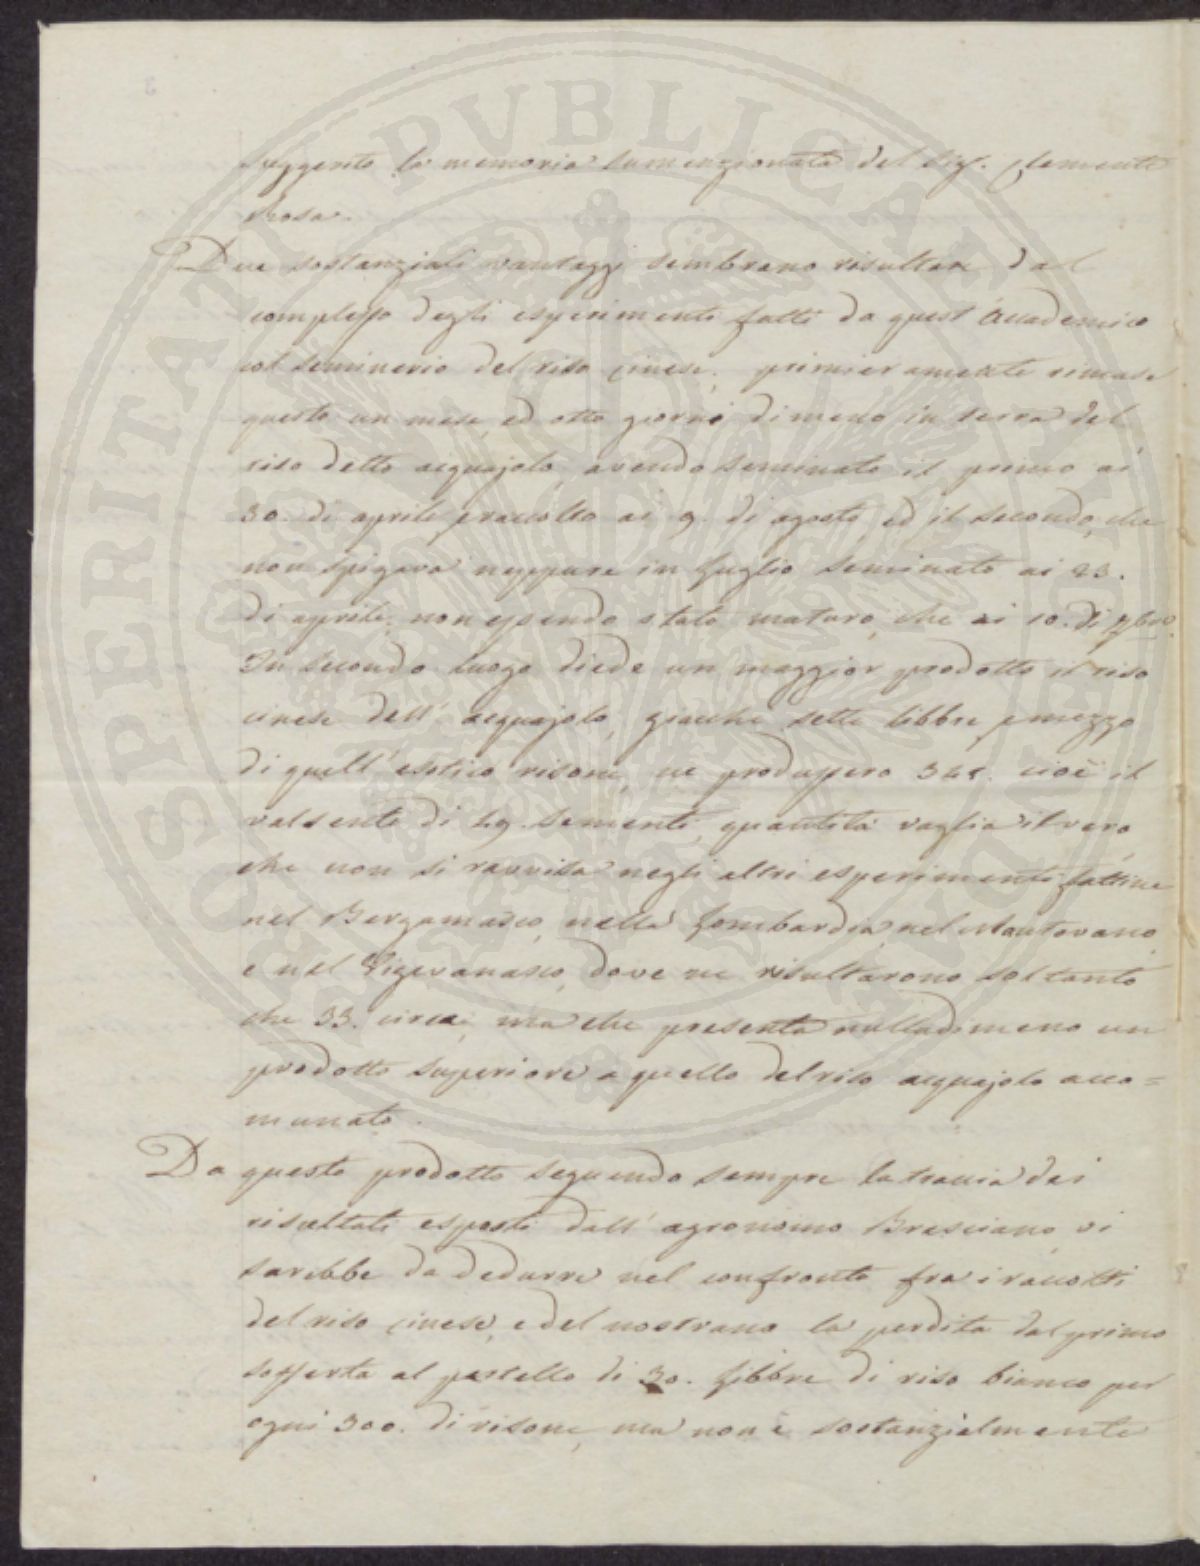 suggerito la memoria summenzionata del Sig. Clemente
Rosa.
Due sostanziali vantaggi sembrano risultare dal
complesso degli esperimenti fatti da quest'Accademico
col seminerio del riso cinese; primieramente rimase
questo un mese, ed otto giorni di meno in terra del
riso detto acquajolo, avendo seminato il primo ai
30. di aprile, raccolto ai 9. di agosto, ed il secondo, che
non spigava neppure in Luglio seminato ai 23.
di aprile, non essendo stato maturo, che ai 10. di 7bre.
In secondo luogo diede un maggior prodotto il riso
cinese dell'acquajolo, giacchè sette libbre, e mezzo
di quell'esotico risone, ne produssero 365. cioè il
valsente di 49. sementi, quantità vaglia il vero,
che non si ravvisa negli altri esperimenti fattine
nel Bergamasco, nella Lombardia, nel Mantovano,
e nel Vigevanasco, dove ne risultarono soltanto
che 33. circa, ma che presenta nulladimeno un
prodotto superiore a quello del riso acquajolo acco=
munato.
Da questo prodotto seguendo sempre la traccia dei
risultati esposti dall'agronomo Bresciano, vi
sarebbe da dedurre nel confronto fra i raccolti
del riso cinese, e del nostrano la perdita dal primo
sofferta al pestello di 30. libbre di riso bianco per
ogni 300. di risone, ma non è sostanzialmente
PROSPERITATI PUBLICAE AUGENDAE